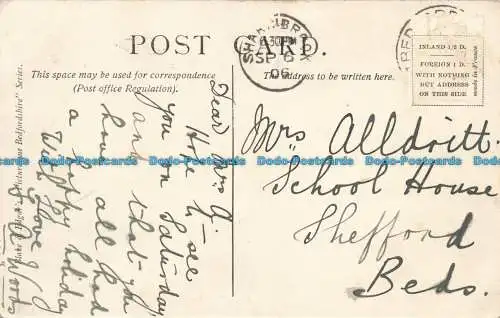 POST CARD.
This space may be used for correspondence
(Post office Regulation).
The address to be written here.
INLAND 1/2 D.
FOREIGN 1 D.
WITH NOTHING
BUT ADDRESS
ON THIS SIDE
SHARNBROOK
6.30PM
SP 6
06
Dear Mrs A.
Hope to see
you on Saturday
and that you
have all had
a happy holiday
With Love
Mrs Alldritt.
School House
Shefford
Beds.
Picturesque Bedfordshire" Series.
Dodo-Postcards Dodo-Postcards Dodo-Postcards Dodo-Postcards Dodo-Postcards